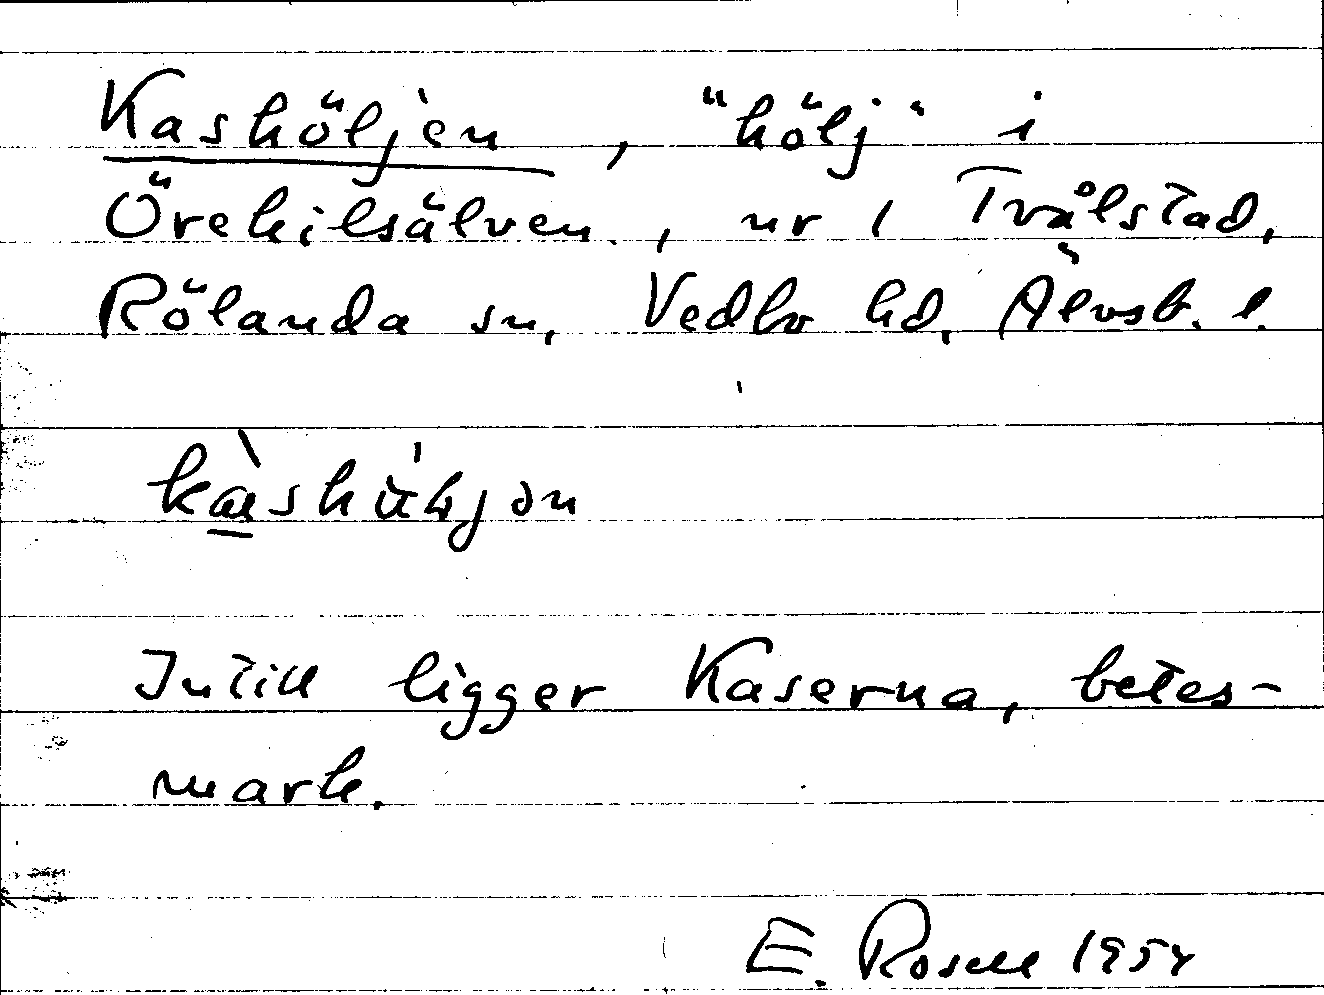 Kashöljen, "hölj" i
Örekilsälven, nr 1 Tvålstad,
Rölanda sn, Vedbo hd, Älvsb. l.
Intill ligger Kaserna, betes-
mark.
E. Rosell 1954